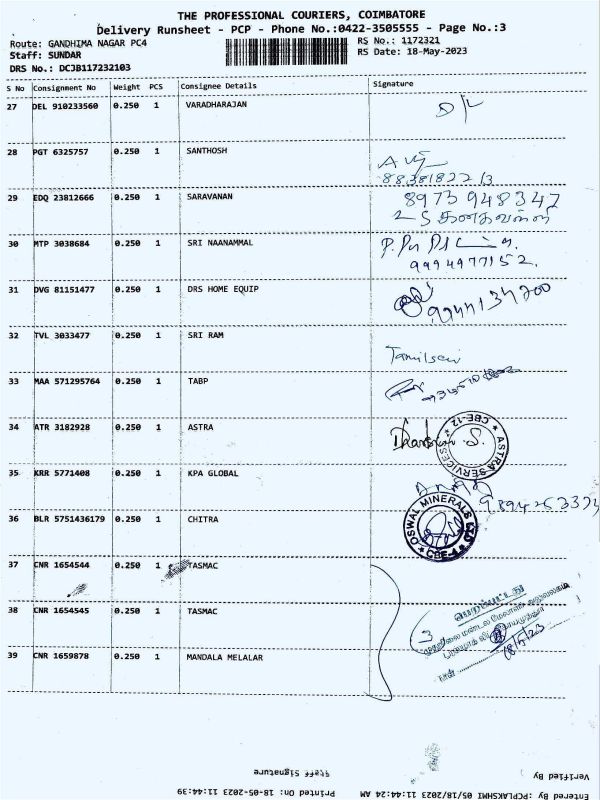 THE PROFESSIONAL COURIERS, COIMBATORE
Delivery Runsheet - PCP - Phone No.:0422-3505555 - Page No.:3
Route: GANDHIMA NAGAR PC4 RS No.: 1172321
Staff: SUNDAR RS Date: 18-May-2023
DRS No.: DCJB117232103
S No Consignment No Weight PCS Consignee Details Signature
27 DEL 910233560 0.250 1 VARADHARAJAN D/L
28 PGT 6325757 0.250 1 SANTHOSH
29 EDQ 23812666 0.250 1 SARAVANAN 8973948347
30 MTP 3038684 0.250 1 SRI NAANAMMAL
9994977152.
31 DVG 81151477 0.250 1 DRS HOME EQUIP
32 TVL 3033477 0.250 1 SRI RAM
33 MAA 571295764 0.250 1 TABP
34 ATR 3182928 0.250 1 ASTRA
ASTRA SERVICES CBE-12
35 KRR 5771408 0.250 1 KPA GLOBAL
36 BLR 5751436179 0.250 1 CHITRA
OSWAL MINERALS
37 CNR 1654544 0.250 1 TASMAC
பெறப்பட்டது
38 CNR 1654545 0.250 1 TASMAC
3
18/5/23
39 CNR 1659878 0.250 1 MANDALA MELALAR
Staff Signature Verified By
Printed On: 18-05-2023 11:44:39 Entered By :PCPLAKSHMI 05/18/2023 11:44:24 AM